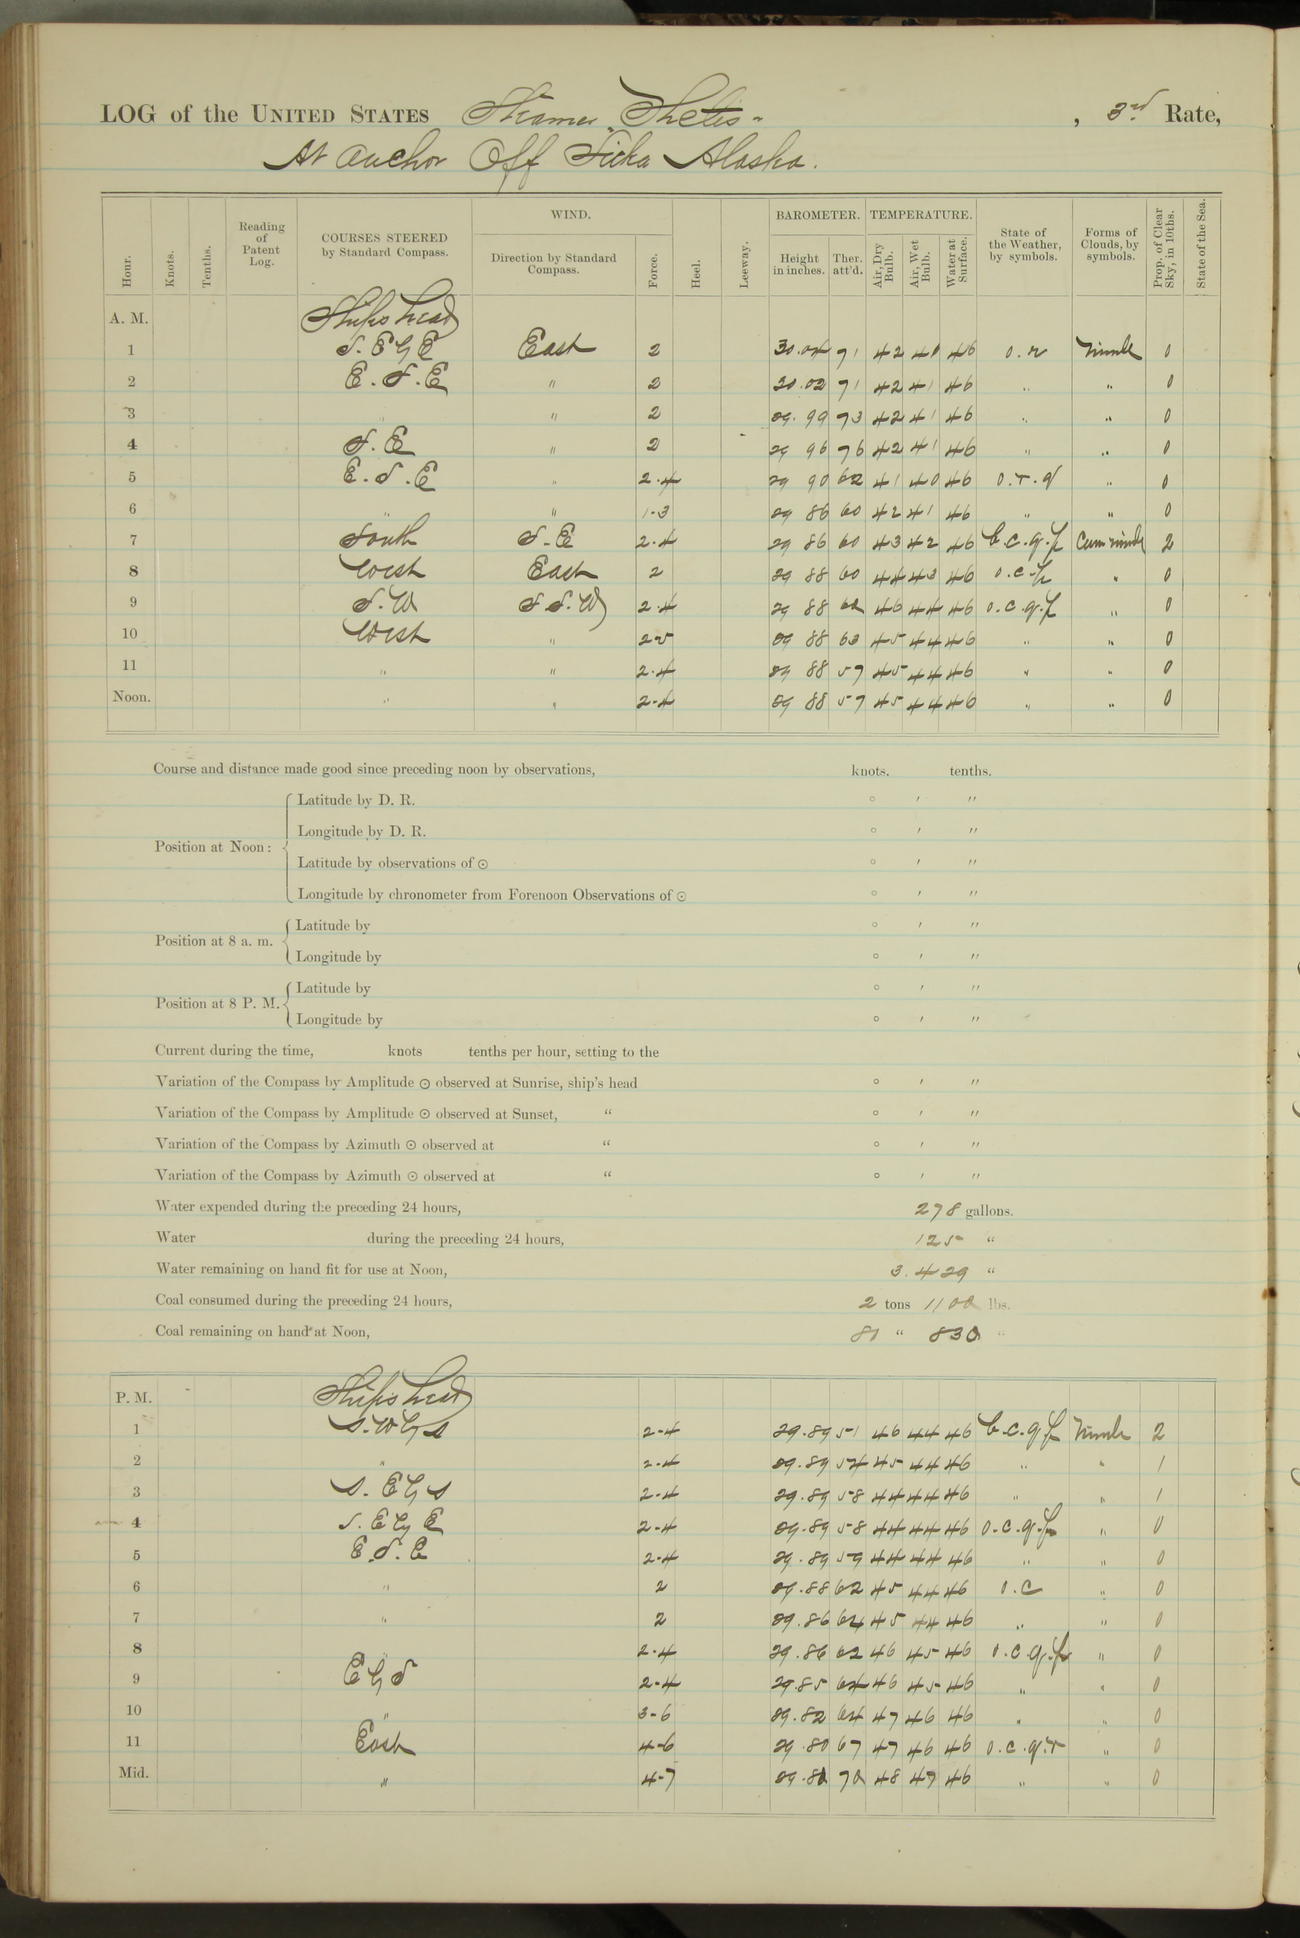 LOG of the UNITED STATES Steamer "Thetis" , 3rd Rate,
At anchor Off Sitka Alaska.
Hour. Knots. Tenths. Reading of Patent Log. COURSES STEERED by Standard Compass. WIND. Direction by Standard Compass. Force. Heel. Leeway. BAROMETER. Height in inches. Ther. att'd. TEMPERATURE. Air, Dry Bulb. Air, Wet Bulb. Water at Surface. State of the Weather, by symbols. Forms of Clouds, by symbols. Prop. of Clear Sky, in 10ths. State of the Sea.
A. M. Ship's head
1 S. E by E East 2 30.04 71 42 40 46 o. r Nimb 0
2 E. S. E " 2 30.02 71 42 41 46 " " 0
3 " 2 29.99 73 42 41 46 " " 0
4 S. E " 2 29 96 76 42 41 46 " " 0
5 E. S. E " 2-4 29 90 62 41 40 46 o. r. q " 0
6 " " 1-3 29 86 60 42 41 46 " " 0
7 South S-E 2-4 29 86 60 43 42 46 b.c.q.p Cum nimb 2
8 West East 2 29 88 60 44 43 46 o.c.p " 0
9 S. W S S. W 2-4 29 88 62 46 44 46 o.c.q.p " 0
10 West " 2-5 29 88 63 45 44 46 " " 0
11 " " 2-4 29 88 57 45 44 46 " " 0
Noon. " " 2-4 29 88 57 45 44 46 " " 0
Course and distance made good since preceding noon by observations, knots. tenths.
Position at Noon: Latitude by D. R. ° ′ ″
Longitude by D. R. ° ′ ″
Latitude by observations of ⊙ ° ′ ″
Longitude by chronometer from Forenoon Observations of ⊙ ° ′ ″
Position at 8 a. m. Latitude by ° ′ ″
Longitude by ° ′ ″
Position at 8 P. M. Latitude by ° ′ ″
Longitude by ° ′ ″
Current during the time, knots tenths per hour, setting to the
Variation of the Compass by Amplitude ⊙ observed at Sunrise, ship's head ° ′ ″
Variation of the Compass by Amplitude ⊙ observed at Sunset, " ° ′ ″
Variation of the Compass by Azimuth ⊙ observed at " ° ′ ″
Variation of the Compass by Azimuth ⊙ observed at " ° ′ ″
Water expended during the preceding 24 hours, 278 gallons.
Water during the preceding 24 hours, 125 "
Water remaining on hand fit for use at Noon, 3.429 "
Coal consumed during the preceding 24 hours, 2 tons 1100 lbs.
Coal remaining on hand at Noon, 80 " 830 "
P. M. Ship's head
1 S. W by S 2-4 29.89 51 46 44 46 b.c.q.p Nimb 2
2 " 2-4 29.89 54 45 44 46 " " 1
3 S. E by S 2-4 29.89 58 44 44 46 " " 1
4 S. E by E 2-4 29.89 58 44 44 46 o.c.q.p " 0
5 E. S. E 2-4 29.89 59 44 44 46 " " 0
6 " 2 29.88 62 45 44 46 o.c " 0
7 " 2 29.86 64 45 44 46 " " 0
8 " 2-4 29.86 62 46 45 46 o.c.q.p " 0
9 E by S 2-4 29.85 64 46 45 46 " " 0
10 " 3-6 29.82 64 47 46 46 " " 0
11 East 4-6 29.80 67 47 46 46 o.c.q.r " 0
Mid. " 4-7 29.80 70 48 47 46 " " 0